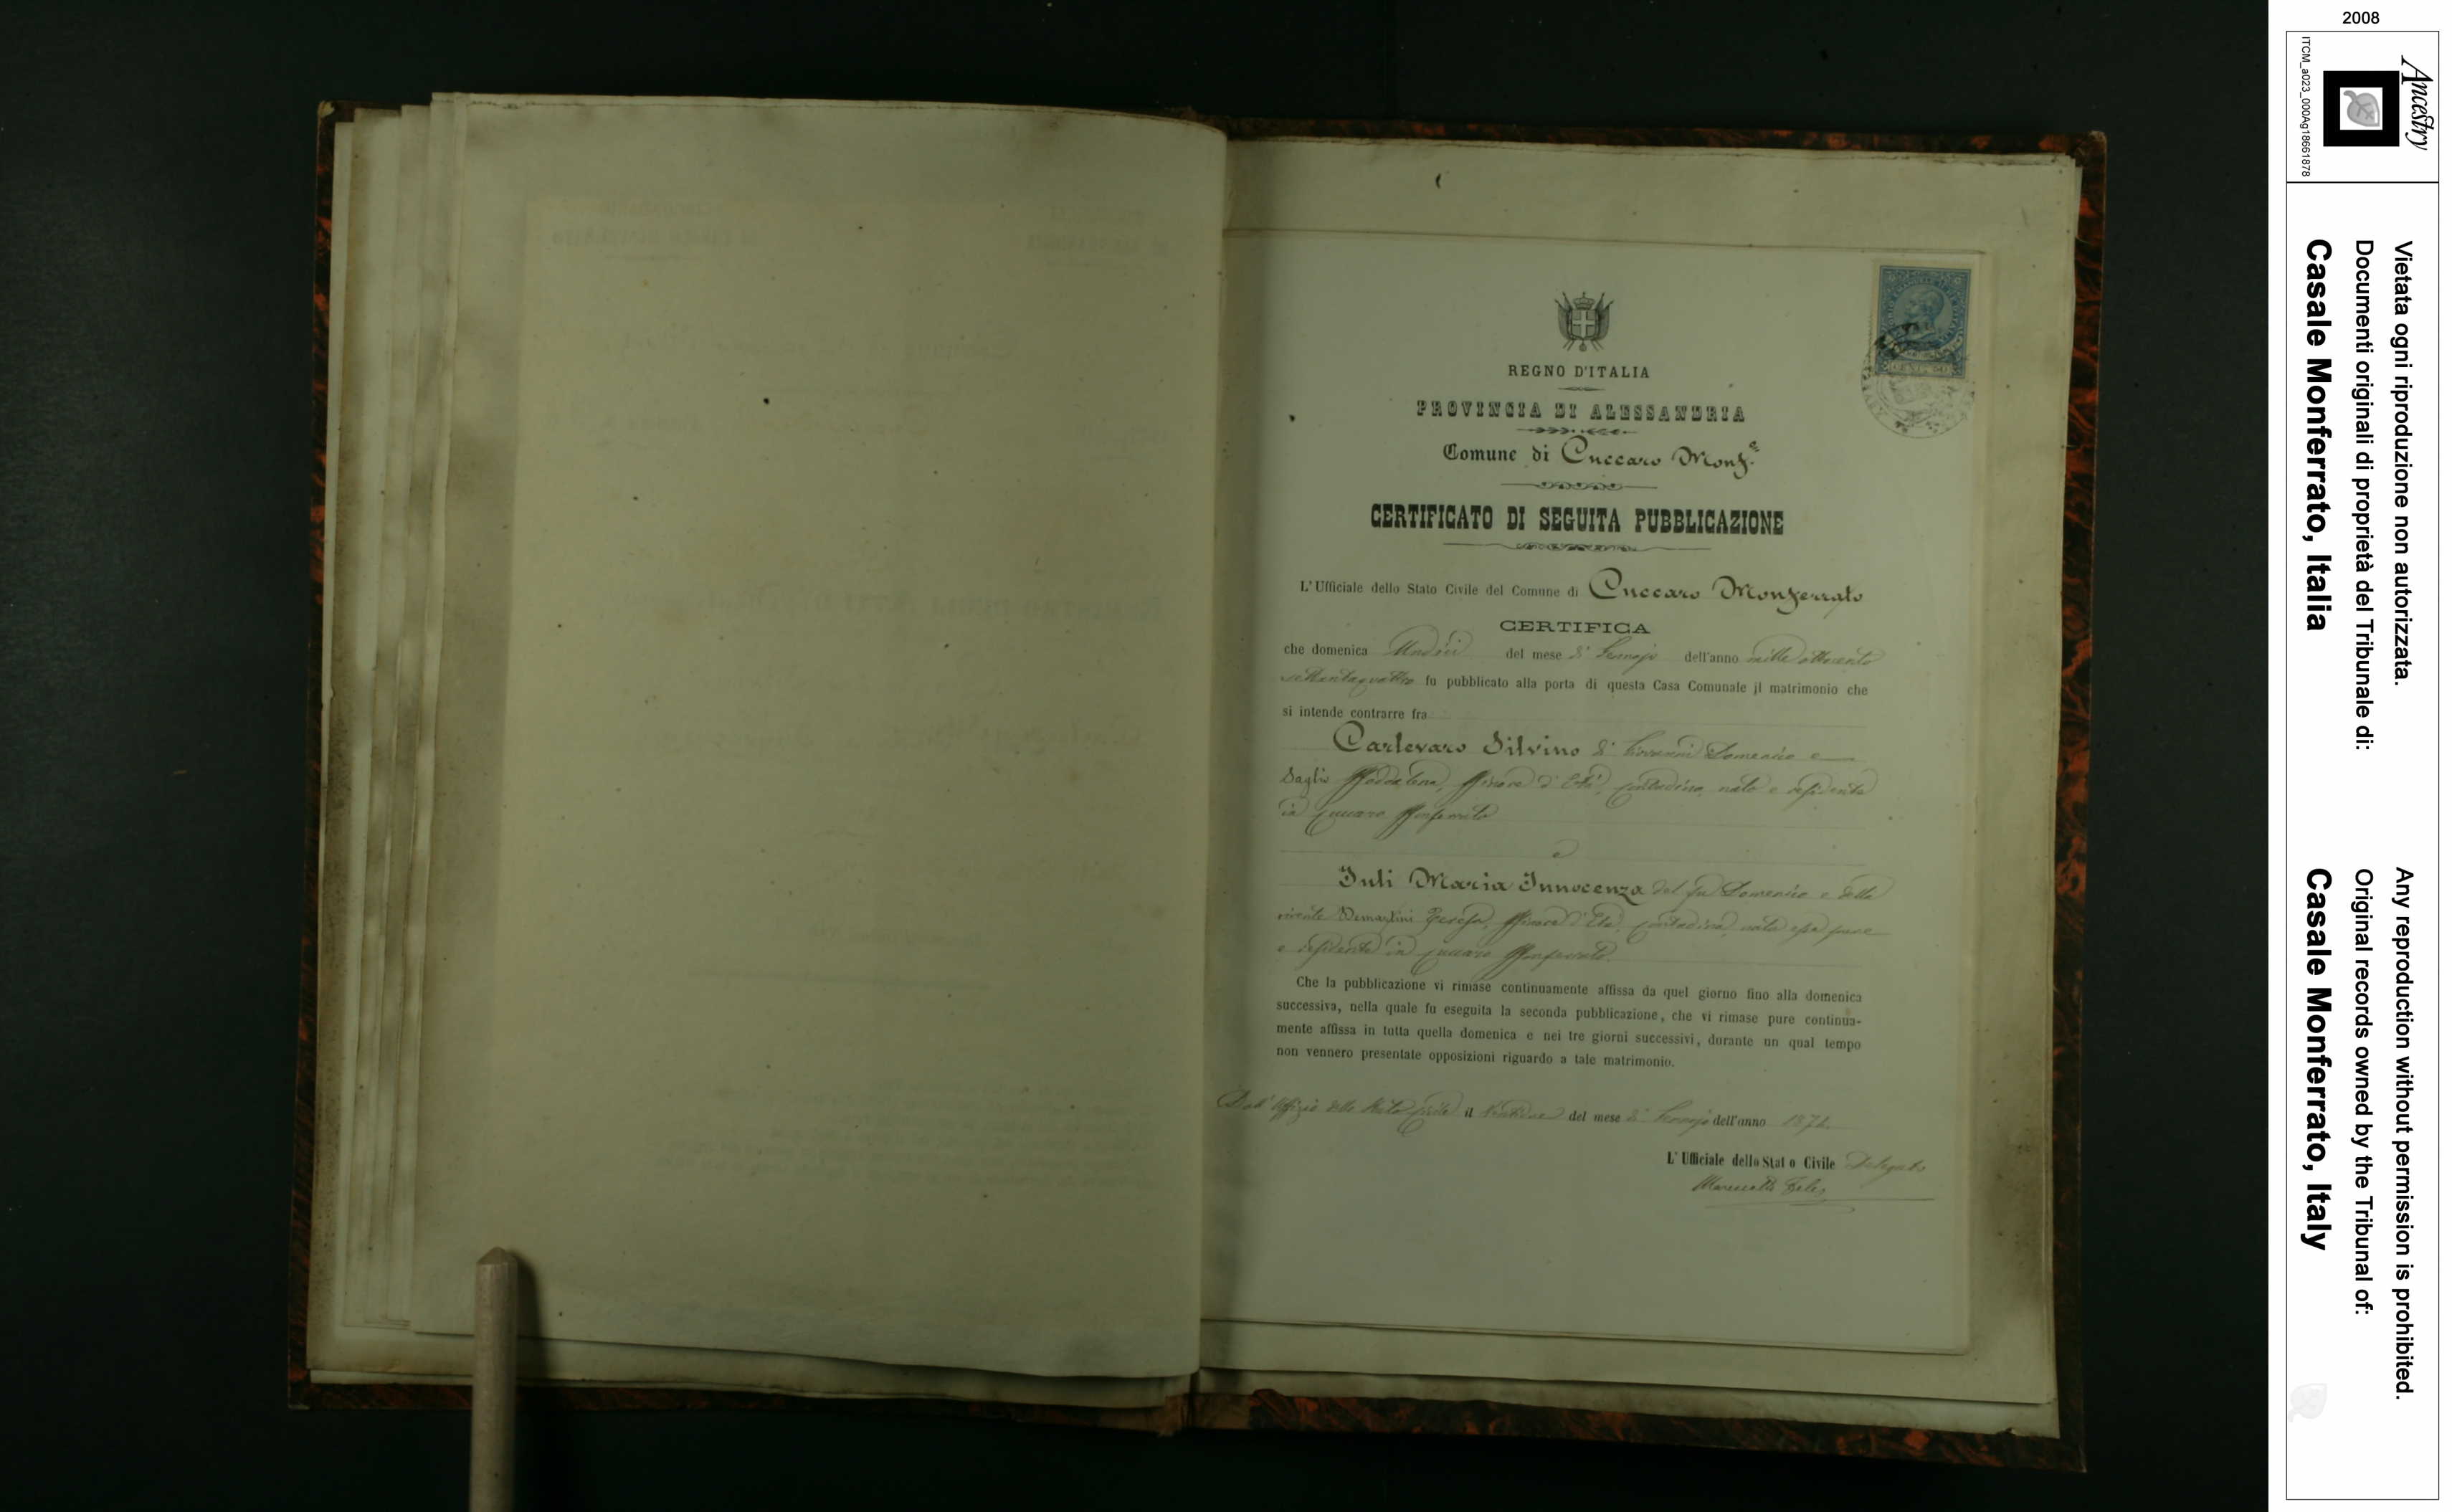 REGNO D'ITALIA
PROVINCIA DI ALESSANDRIA
Comune di Cuccaro Monf.
CERTIFICATO DI SEGUITA PUBBLICAZIONE
L'Ufficiale dello Stato Civile del Comune di Cuccaro Monferrato
CERTIFICA
che domenica Undici del mese di Gennajo dell'anno mille ottocento
settantaquattro fu pubblicato alla porta di questa Casa Comunale il matrimonio che
si intende contrarre fra
Carlevaro Silvino di Giovanni Domenico e
Daglio Maddalena, Minore d'Età, contadino, nato e residente
in Cuccaro Monferrato
e
Juli Maria Innocenza del fu Domenico e della
vivente Demartini Teresa, Minore d'Età, contadina, nata essa pure
e residente in Cuccaro Monferrato.
Che la pubblicazione vi rimase continuamente affissa da quel giorno fino alla domenica
successiva, nella quale fu eseguita la seconda pubblicazione, che vi rimase pure continua-
mente affissa in tutta quella domenica e nei tre giorni successivi, durante un qual tempo
non vennero presentate opposizioni riguardo a tale matrimonio.
Dall'Uffizio dello Stato Civile il Ventidue del mese di Gennajo dell'anno 1874.
L'Ufficiale dello Stato Civile Delegato
2008
Ancestry
ITCM_a023_000Ag18661878
Vietata ogni riproduzione non autorizzata.
Documenti originali di proprietà del Tribunale di:
Casale Monferrato, Italia
Any reproduction without permission is prohibited.
Original records owned by the Tribunal of:
Casale Monferrato, Italy